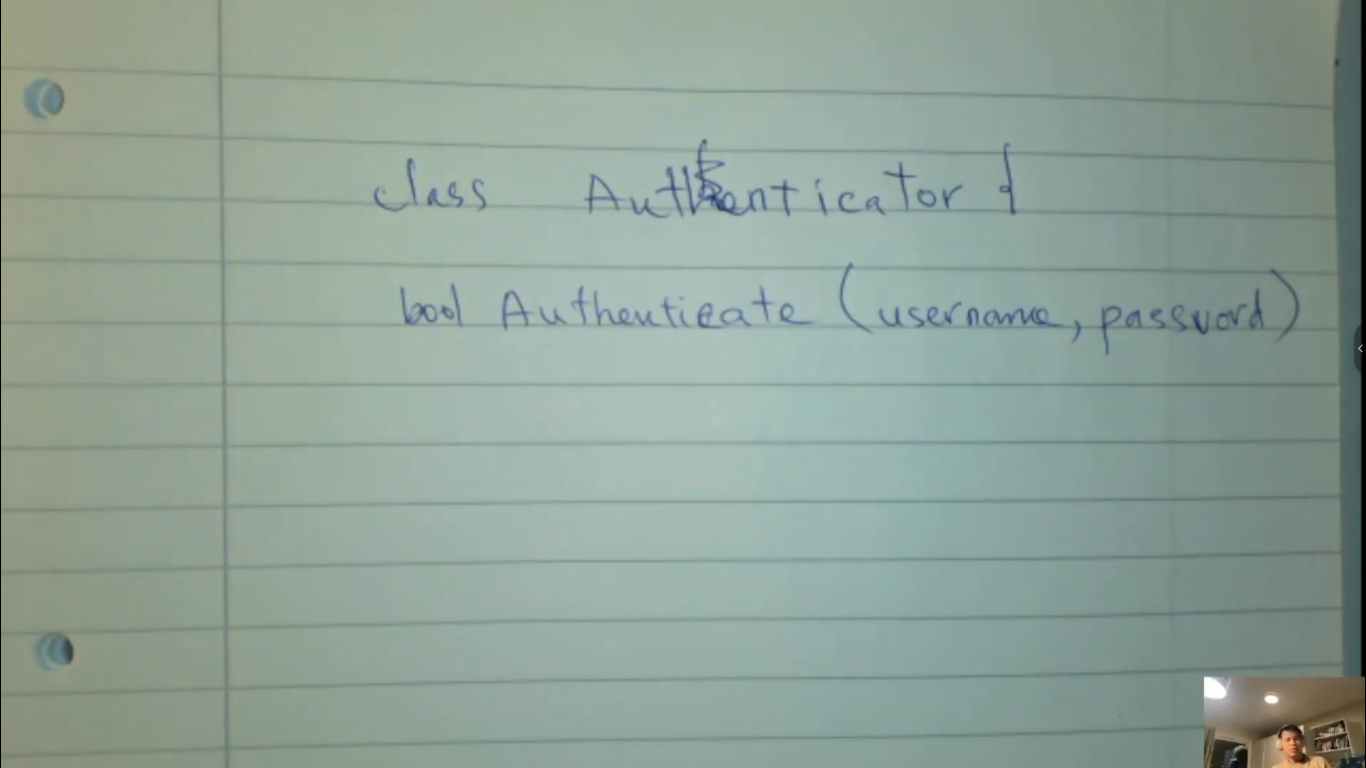 class Authenticator {
bool Authenticate (username, password)